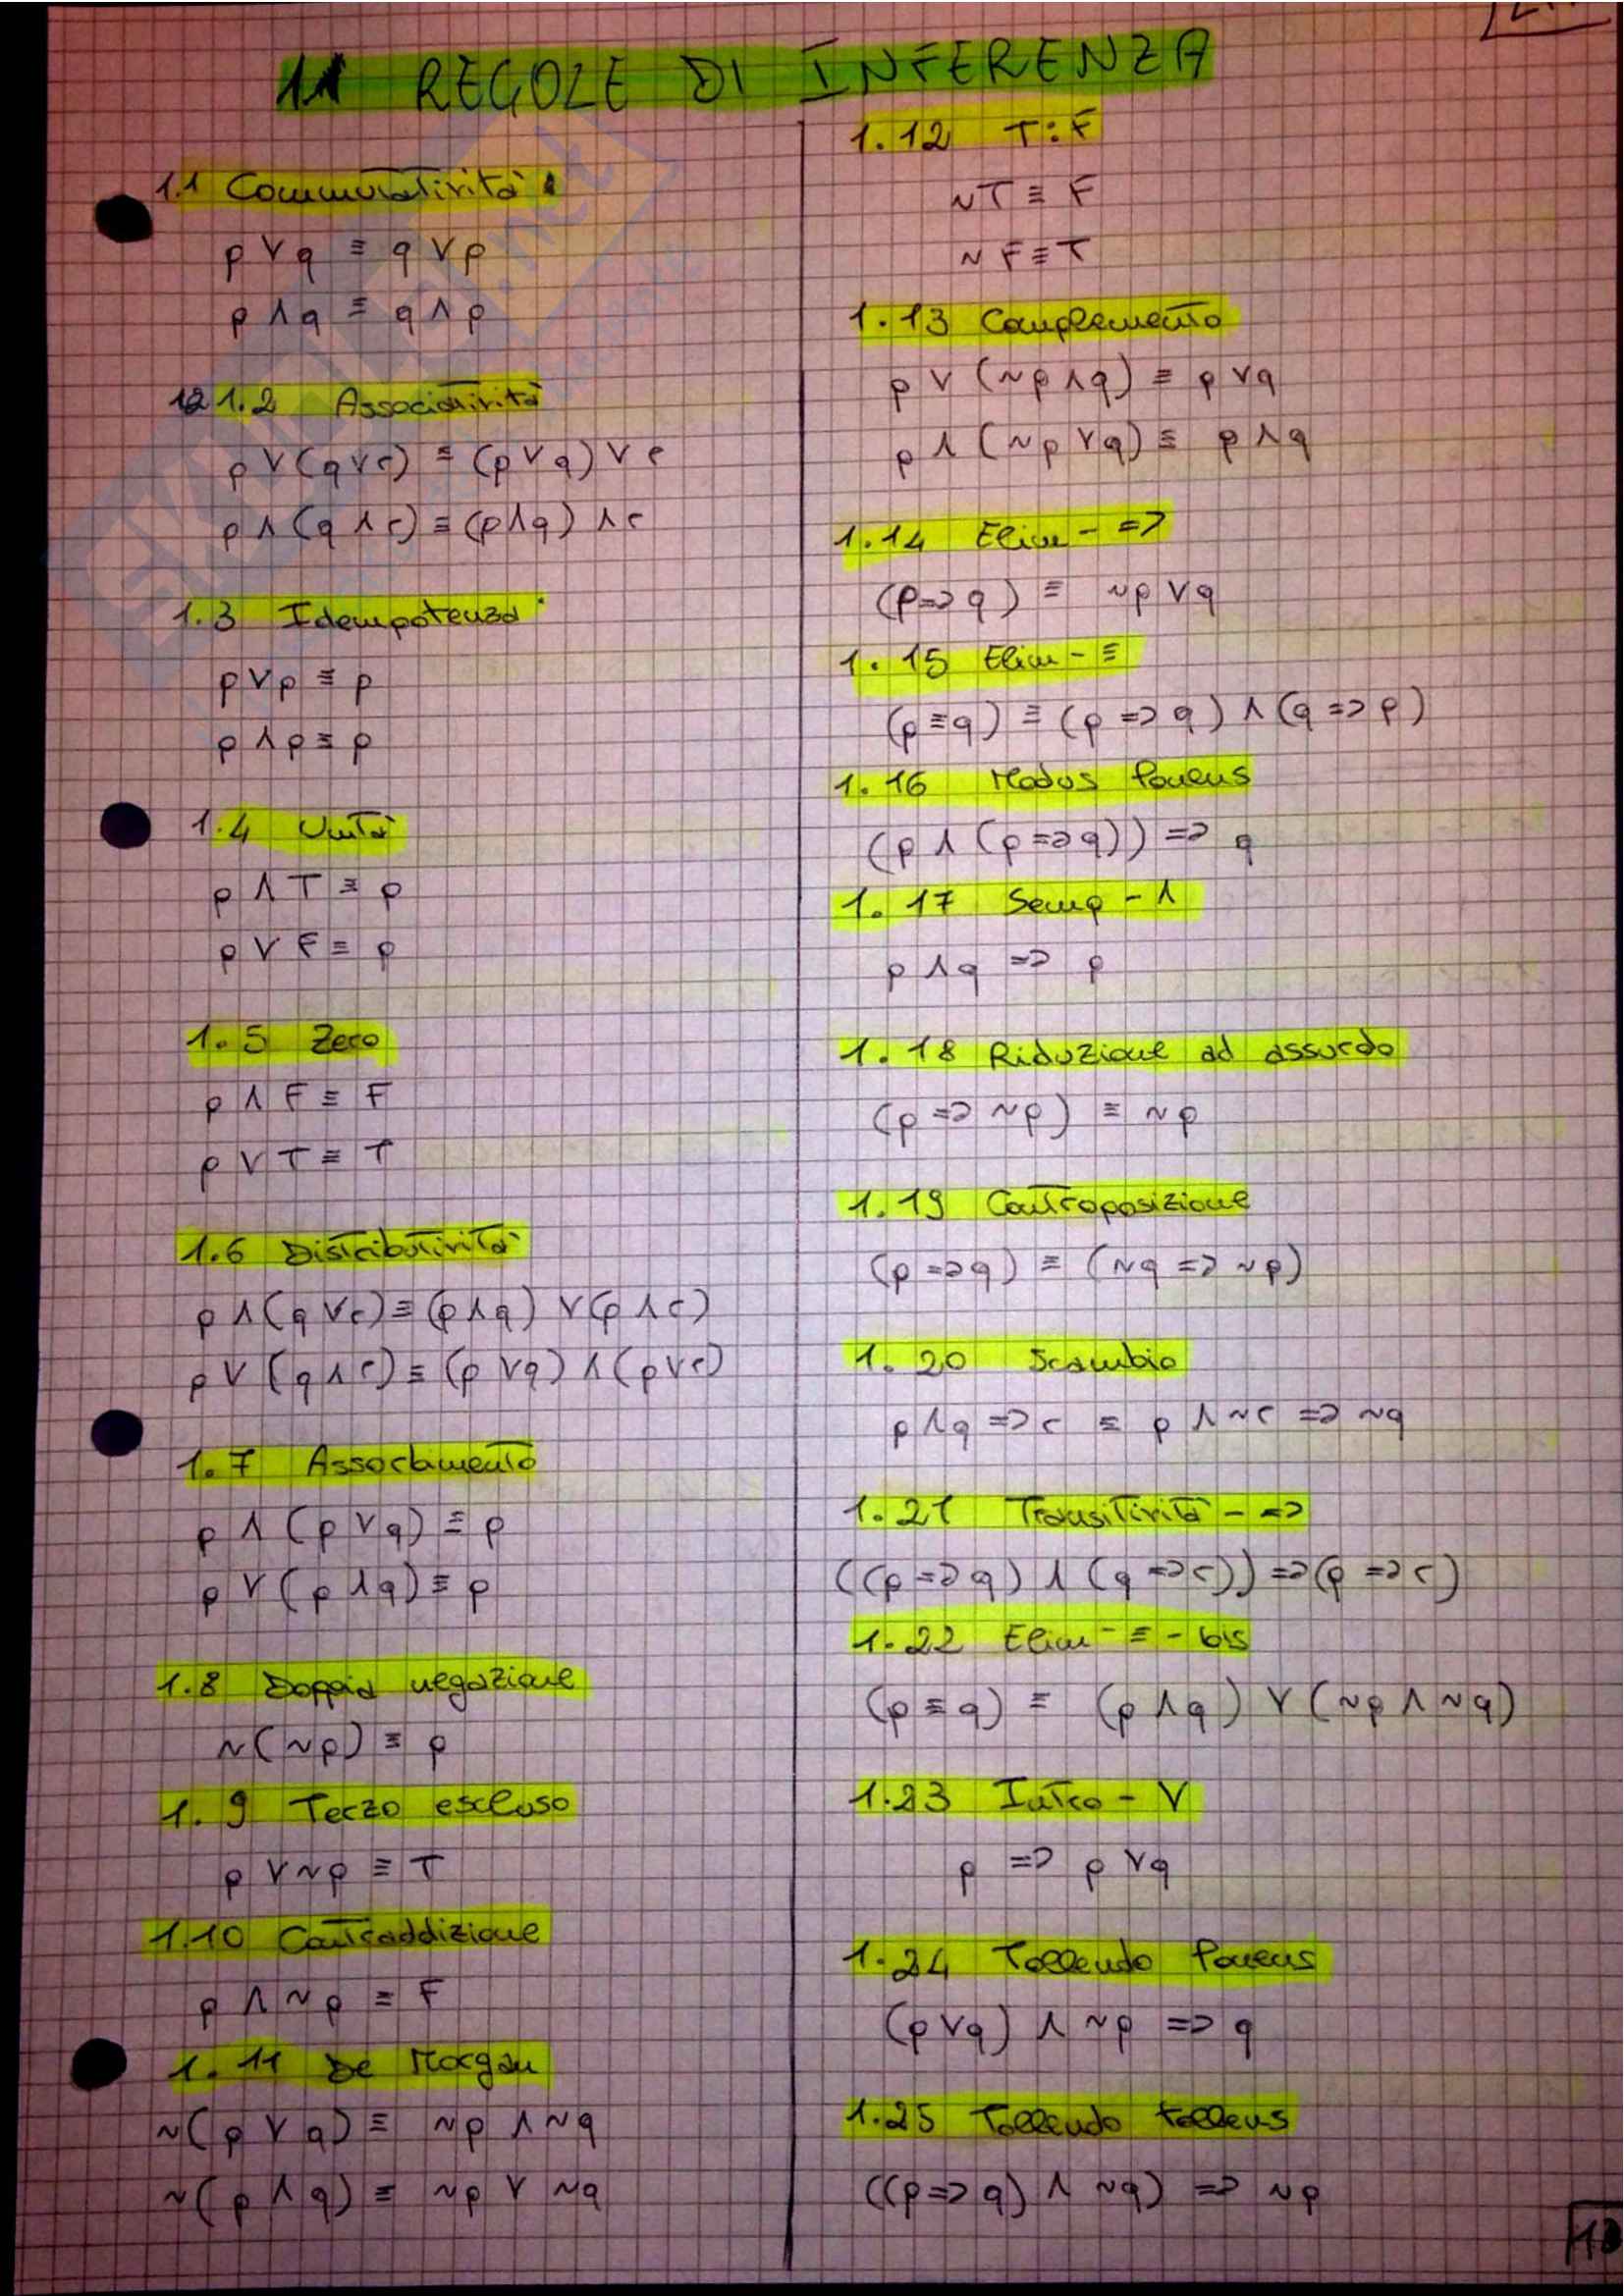 11 REGOLE DI INFERENZA
1.1 Commutatività
p ∨ q ≡ q ∨ p
p ∧ q ≡ q ∧ p
1.2 Associatività
p ∨ (q ∨ r) ≡ (p ∨ q) ∨ r
p ∧ (q ∧ r) ≡ (p ∧ q) ∧ r
1.3 Idempotenza
p ∨ p ≡ p
p ∧ p ≡ p
1.4 Unità
p ∧ T ≡ p
p ∨ F ≡ p
1.5 Zero
p ∧ F ≡ F
p ∨ T ≡ T
1.6 Distributività
p ∧ (q ∨ r) ≡ (p ∧ q) ∨ (p ∧ r)
p ∨ (q ∧ r) ≡ (p ∨ q) ∧ (p ∨ r)
1.7 Assorbimento
p ∧ (p ∨ q) ≡ p
p ∨ (p ∧ q) ≡ p
1.8 Doppia negazione
~(~p) ≡ p
1.9 Terzo escluso
p ∨ ~p ≡ T
1.10 Contraddizione
p ∧ ~p ≡ F
1.11 De Morgan
~(p ∨ q) ≡ ~p ∧ ~q
~(p ∧ q) ≡ ~p ∨ ~q
1.12 T:F
~T ≡ F
~F ≡ T
1.13 Complemento
p ∨ (~p ∧ q) ≡ p ∨ q
p ∧ (~p ∨ q) ≡ p ∧ q
1.14 Elim - =>
(p => q) ≡ ~p ∨ q
1.15 Elim - ≡
(p ≡ q) ≡ (p => q) ∧ (q => p)
1.16 Modus Ponens
(p ∧ (p => q)) => q
1.17 Semp - ∧
p ∧ q => p
1.18 Riduzione ad assurdo
(p => ~p) ≡ ~p
1.19 Controposizione
(p => q) ≡ (~q => ~p)
1.20 Scambio
p ∧ q => r ≡ p ∧ ~r => ~q
1.21 Transitività - =>
((p => q) ∧ (q => r)) => (p => r)
1.22 Elim - ≡ - bis
(p ≡ q) ≡ (p ∧ q) ∨ (~p ∧ ~q)
1.23 Intro - ∨
p => p ∨ q
1.24 Tollendo Ponens
(p ∨ q) ∧ ~p => q
1.25 Tollendo tollens
((p => q) ∧ ~q) => ~p